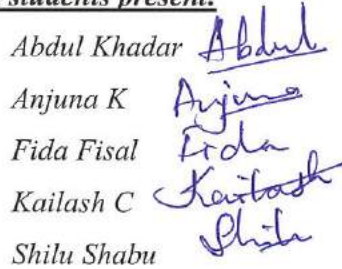 students present:
Abdul Khadar Abdul
Anjuna K Anjuna
Fida Fisal Fida
Kailash C Kailash
Shilu Shabu Shilu